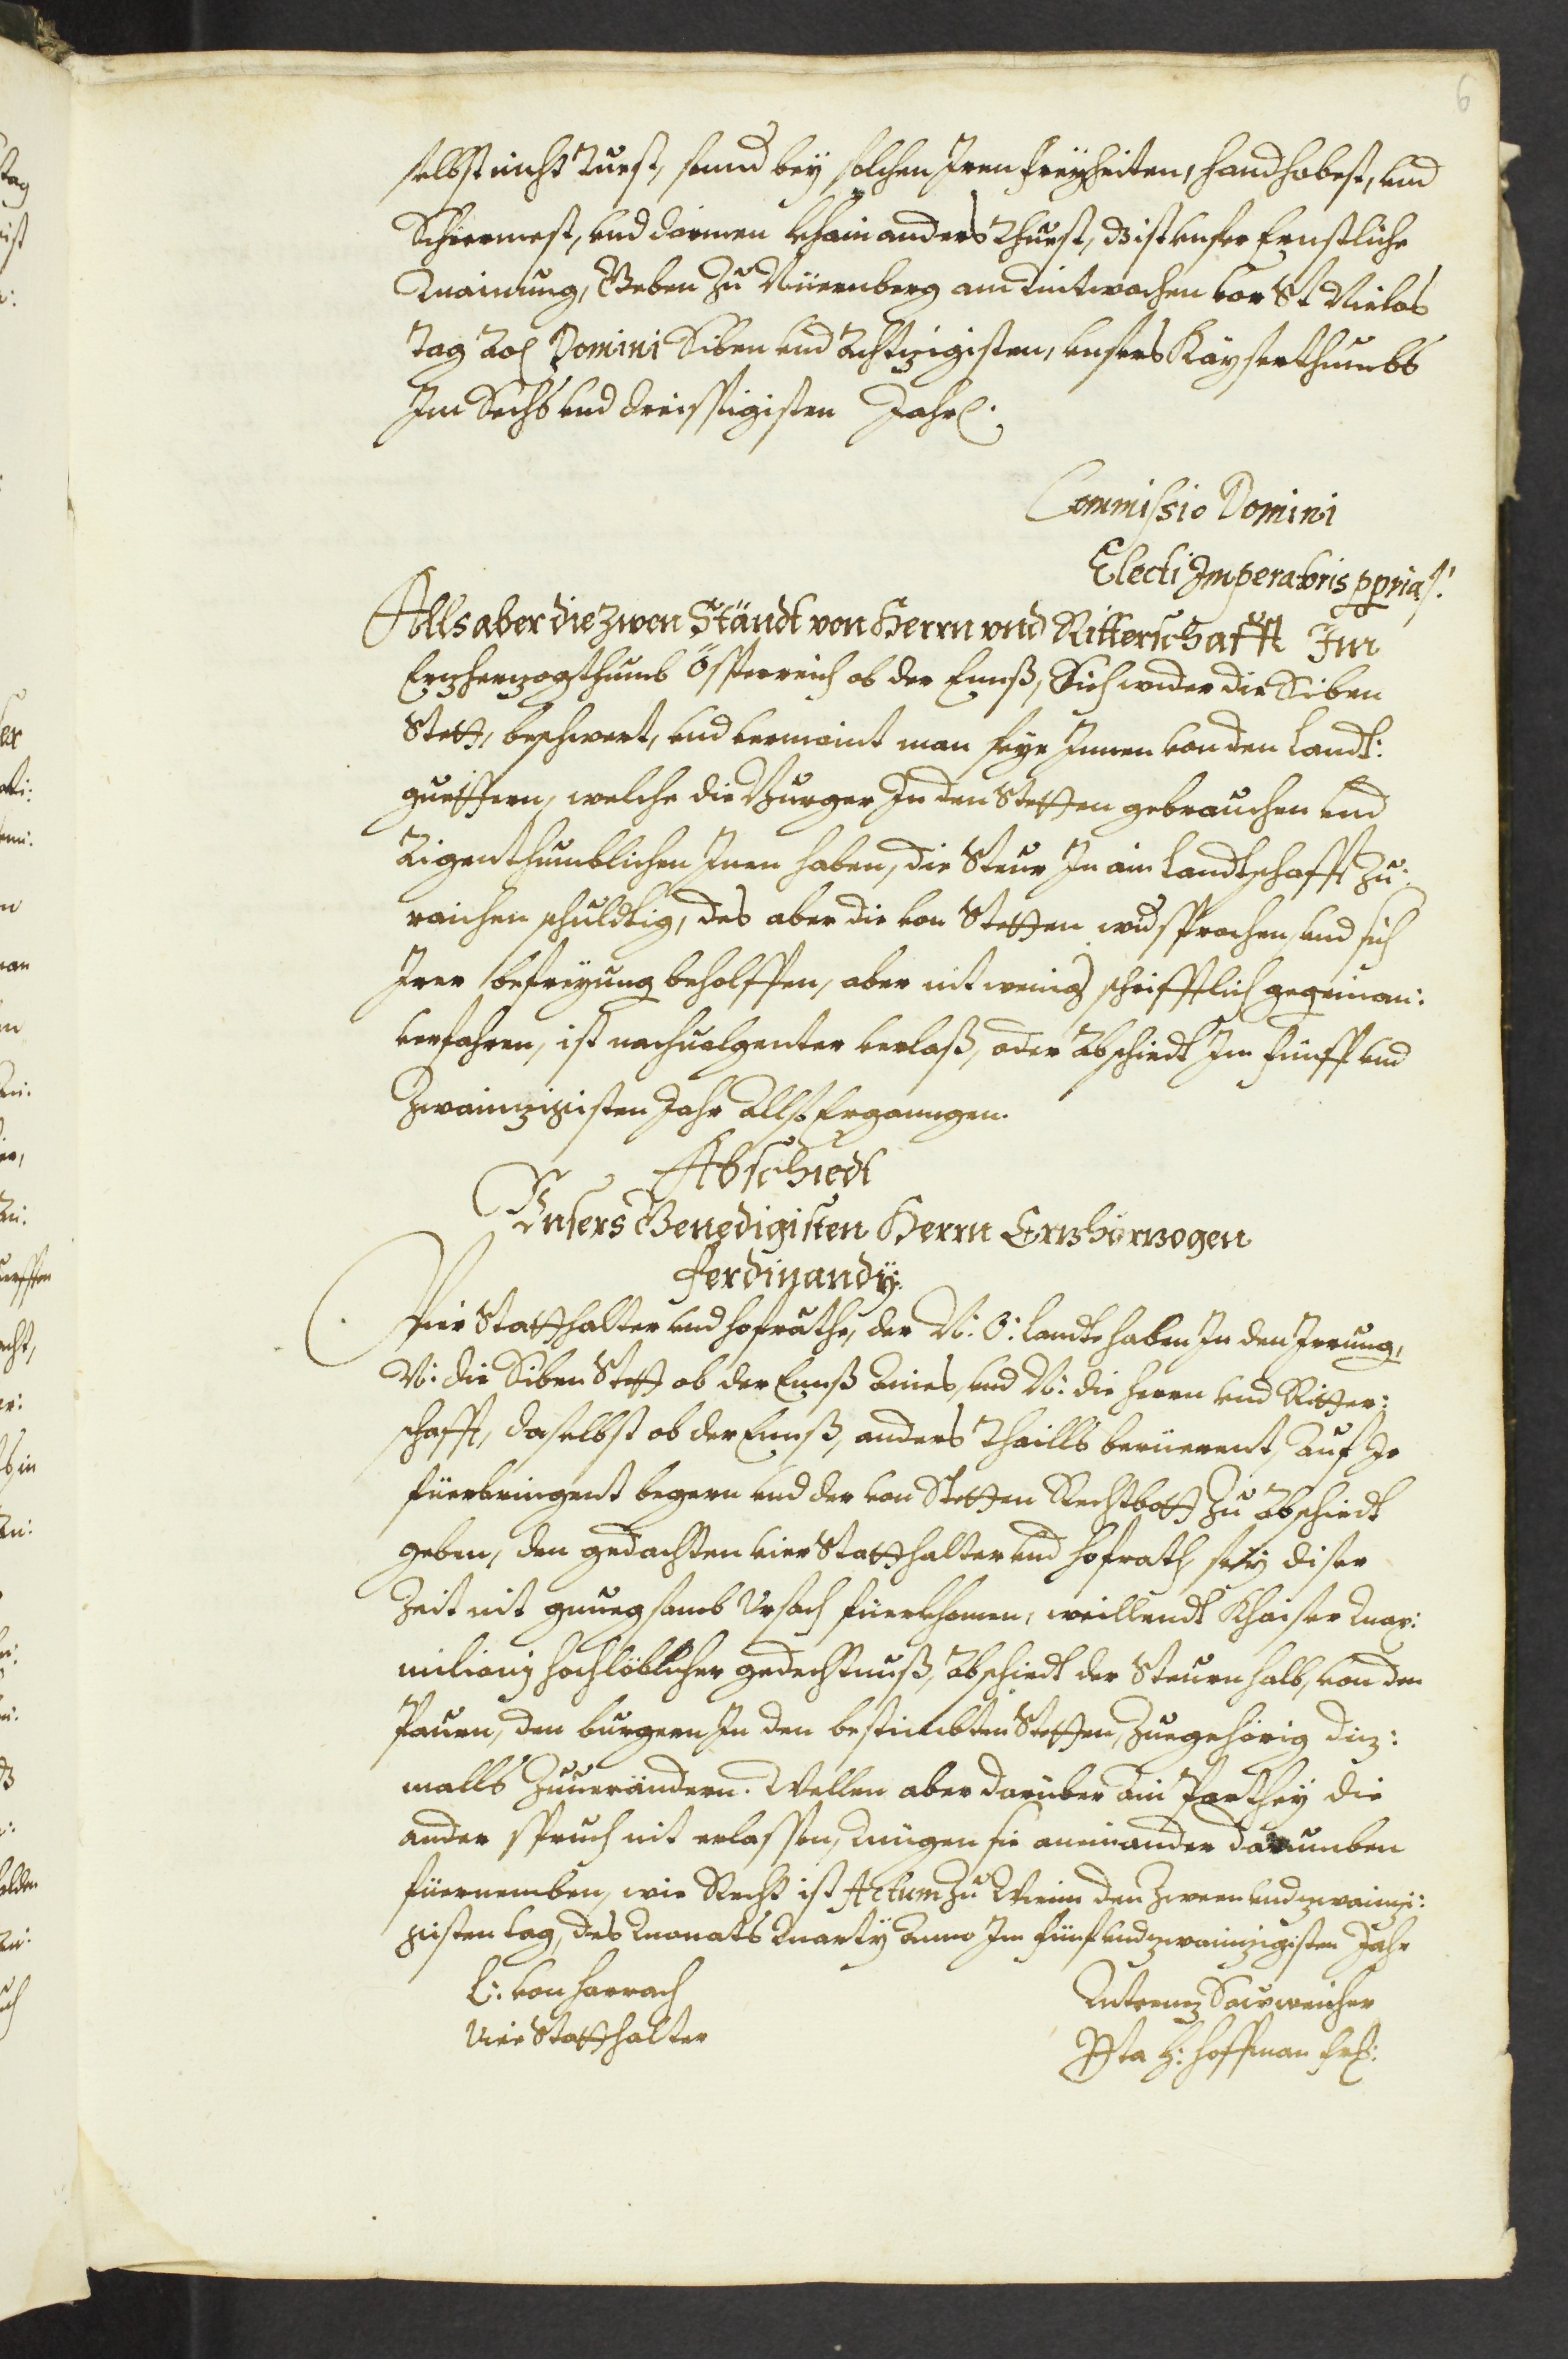 6
selbst nicht Tuest, sonnd bey solchen Iren freyheiten, handhabest, vnd
Schiermest, vnd darinnen khain anders Thuest, Dz ist vnser Ernstliche
Mainung, Geben Zu Nüernberg am Mitwochen vor St Niclas
tag Domini Siben vnd Achtzigisten, vnsers Kayserthumbs
Im Sechs vnd dreissigisten Jahr.
Commissio Domini
Electi Imperatoris ppria
Alls aber die zwen Ständt von Herrn vnd Ritterschafft Im
Erzherzogthumb Össterreich ob der Ennß, Sich wider die Siben
Stett, beschwert, vnd vermaint man seye Innen von den Landt:
guettern, welche die Burger In den Stetten gebrauchen vnd
Aigenthumblichen Inen haben, die Steur In ain Landtschafft zu:
raichen schuldtig, das aber die von Stetten widsprochen, vnd sich
Irer befreyung beholffen, aber nit wenig schrifftlich gegeinan:
verfahren, ist nachuolgenter verlaß, oder Abschiedt Im fünff vnd
Zwainzigisten Jahr Allso Ergangen.
Abschiedt
Vnsers Genedigisten Herrn Erzherzogen
Ferdinandÿ.
Wir Statthalter vnd Hofräthe, der N: Ö: Landte haben In den Irrung,
N: die Siben Stett ob der Ennß Aines, vnd N: die Herrn vnd Ritter:
schafft, daselbst ob der Ennß, anders Thaills berüerent, Auf Ir
füerbringent begern vnd der von Stetten Rechtbott Zu Abschiedt
geben, den gedachten vier Statthalter vnd Hofrath, sey diser
Zeit nit gnuegsamb Vrsach füerkhomen, weillendt Khaiser Max:
miliany hochlöblicher gedechtnuß, Abschiedt der Steuern halb, von den
Paurn, den burgern In den bestimbten Stetten, Zuegehörig diz:
malls Zuuerändern. Wellen aber darüber ain Parthey die
ander spruch nit erlassen, Mügen sie aneinander darumben
füernemben, wie Recht ist Actum Zu Wienn den Zween vnd zwainzi:
gisten tag, des Monats Marty Anno Im fünf vnd zwainzigisten Jahr
L: von Harrach
Vice Statthalter
H: Hoffman